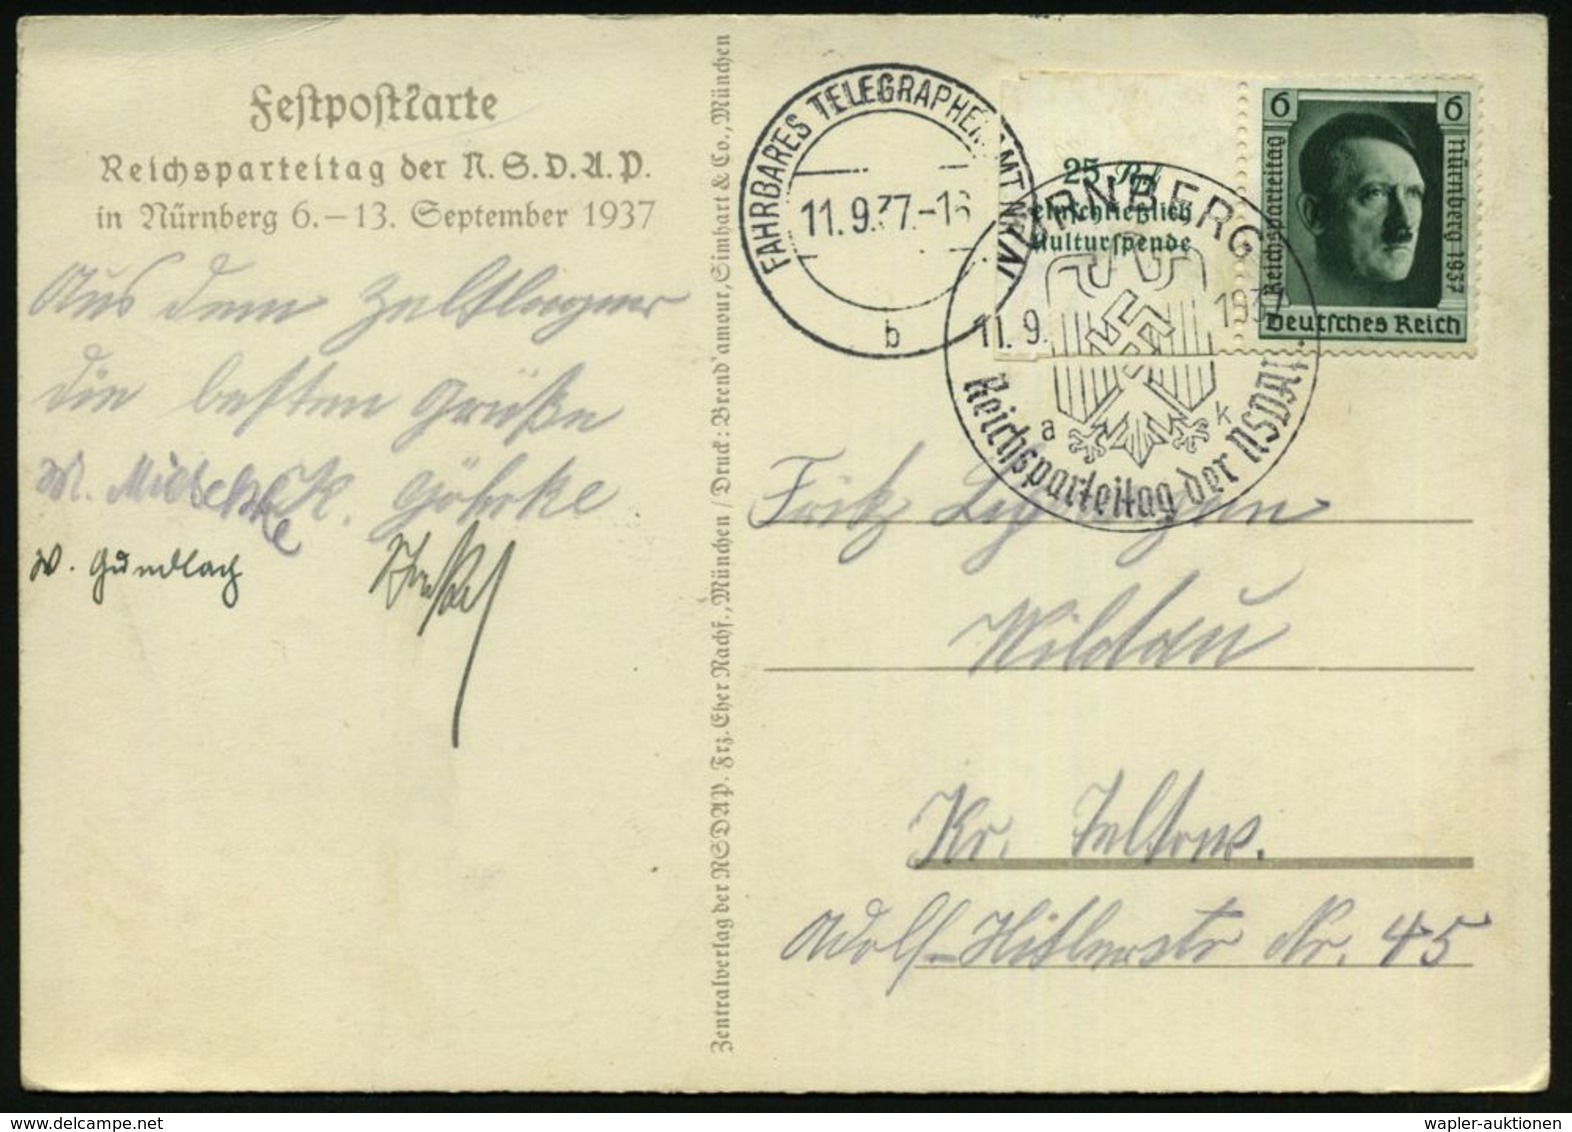 Festpostkarte
Reichsparteitag der N.S.D.A.P.
in Nürnberg 6.–13. September 1937
Aus dem Zeltlager
die besten Grüße
K. Göhrke
W. Gundlach
Zentralverlag der NSDAP. Frz. Eher Nachf., München / Druck: Brend'amour, Simhart & Co., München
FAHRBARES TELEGRAPHENAMT
11.9.37.-16
b
25 Rpf
einschließlich
Kulturspende
NÜRNBERG
11. 9. 1937
a k
Reichsparteitag der NSDAP.
6 6
Reichsparteitag Nürnberg 1937
Deutsches Reich
Fritz
Wildau
Kr. Teltow.
Adolf-Hitlerstr Nr. 45
wapler-auktionen